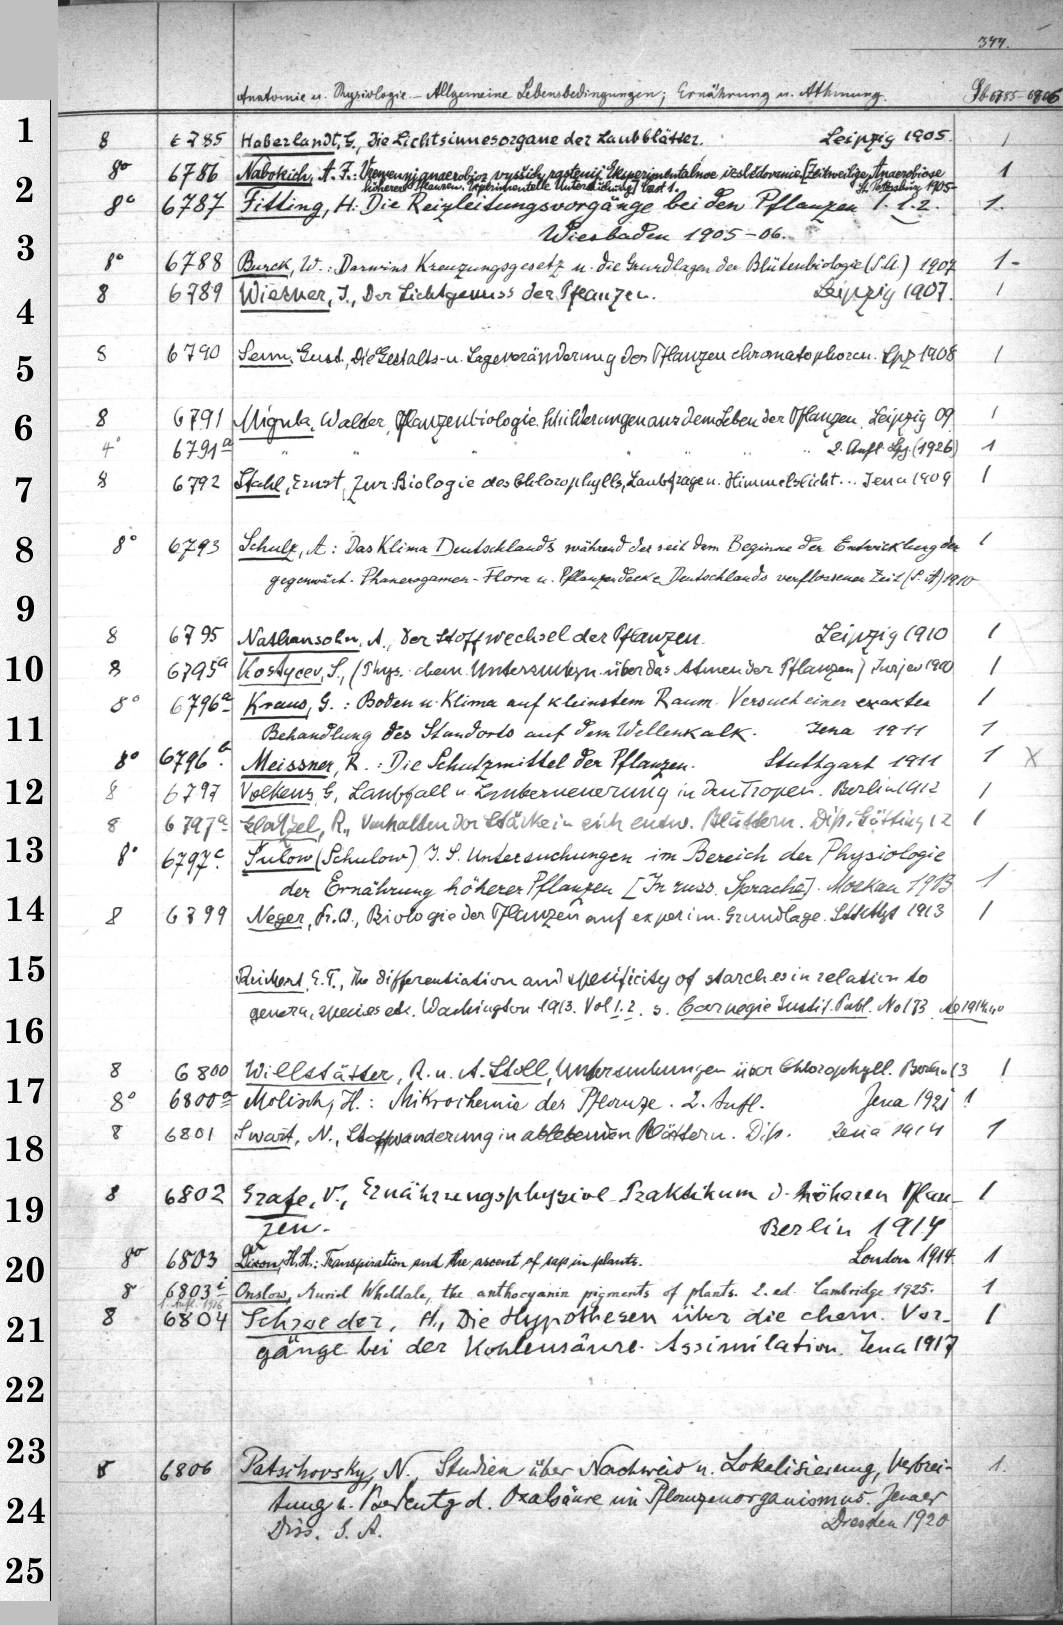 344.
Anatomie u. Physiologie - Allgemeine Lebensbedingungen; Ernährung u. Athmung. Sb 6785-6806
1 8 6785 Haberlandt, G., Die Lichtsinnesorgane der Laubblätter. Leipzig 1905. 1
8° 6786 Nabokich, A. F.: Vremennyj anaerobioz vysšich rastenij. Eksperimentalnoe izslědovanie. [Zeitweilige Anaerobiose 1
2 höherer Pflanzen. Experimentelle Untersuchung] Čast 1. St. Petersburg 1905
8° 6787 Fitting, H. Die Reizleitungsvorgänge bei den Pflanzen 1. 2. 1.
3 Wiesbaden 1905-06.
8° 6788 Burck, W.: Darwins Kreuzungsgesetz u. die Grundlagen der Blütenbiologie (S.A.) 1907 1-
8 6789 Wiesner, J., Der Lichtgenuss der Pflanzen. Leipzig 1907. 1
4
5 8 6790 Senn, Gust., Die Gestalts- u. Lageveränderung der Pflanzenchromatophoren. Lpz 1908 1
6 8 6791 Migula, Walder, Pflanzenbiologie. Schilderungen aus dem Leben der Pflanzen. Leipzig 09. 1
4° 6791a " " " " " " 2. Aufl. Lpz. (1926) 1
7 8 6792 Stahl, Ernst, Zur Biologie des Chlorophylls, Laubfrage u. Himmelslicht... Jena 1909 1
8 8° 6793 Schulz, A: Das Klima Deutschlands während der seit dem Beginne der Entwicklung der 1
gegenwärt. Phanerogamen-Flora u. Pflanzendecke Deutschlands verflossenen Zeit (S.A) 1910
9
8 6795 Nathansohn, A., Der Stoffwechsel der Pflanzen. Leipzig 1910 1
10 8 6795a Kostycev, S., (Phys. chem. Untersuchgn. über das Atmen der Pflanzen) Jurjew 1910 1
8° 6796a Kraus, G.: Boden u. Klima auf kleinstem Raum. Versuch einer exakten 1
11 Behandlung des Standorts auf dem Wellenkalk. Jena 1911 1
8° 6796 Meissner, R.: Die Schutzmittel der Pflanzen. Stuttgart 1911 1 X
12 8 6797 Volkens, G., Laubfall u. Lauberneuerung in den Tropen. Berlin 1912 1
8 6797a R., Verhalten der Stärke in sich entw. Blättern. Diss. Götting 12 1
13 8° 6797c Sulow (Schulow) J. S. Untersuchungen im Bereich der Physiologie
der Ernährung höherer Pflanzen [In russ. Sprache]. Moskau 1913 1
14 8 6799 Neger, F. W., Biologie der Pflanzen auf experim. Grundlage. Stuttgt 1913 1
15 Reichert, E. T., The differentiation and specificity of starches in relation to
genera, species etc. Washington 1913. Vol 1. 2. s. Carnegie Instit. Publ. No 173
16
8 6800 Willstätter, R. u. A. Stoll, Untersuchungen über Chlorophyll. Berlin 13 1
17 8° 6800a Molisch, H.: Mikrochemie der Pflanze. 2. Aufl. Jena 1921 1
18 8 6801 Swart, N., Stoffwanderung in ablebenden Blättern. Diss. Jena 1914 1
19 8 6802 Grafe, V., Ernährungsphysiol. Praktikum d. höheren Pflan- 1
zen. Berlin 1914
20 8° 6803 Dixon, H. H.: Transpiration and the ascent of sap in plants. London 1914. 1
8 6803i Onslow, Muriel Wheldale, the anthocyanin pigments of plants. 2. ed. Cambridge 1925. 1
1. Aufl. 1916
21 8 6804 Schroeder, H., Die Hypothesen über die chem. Vor- 1
gänge bei der Kohlensäure-Assimilation. Jena 1917
22
23 8 6806 Patschovsky, N., Studien über Nachweis u. Lokalisierung, Verbrei- 1.
24 tung u. Bedeutg d. Oxalsäure im Pflanzenorganismus. Jenaer
Diss. S. A. Dresden 1920
25